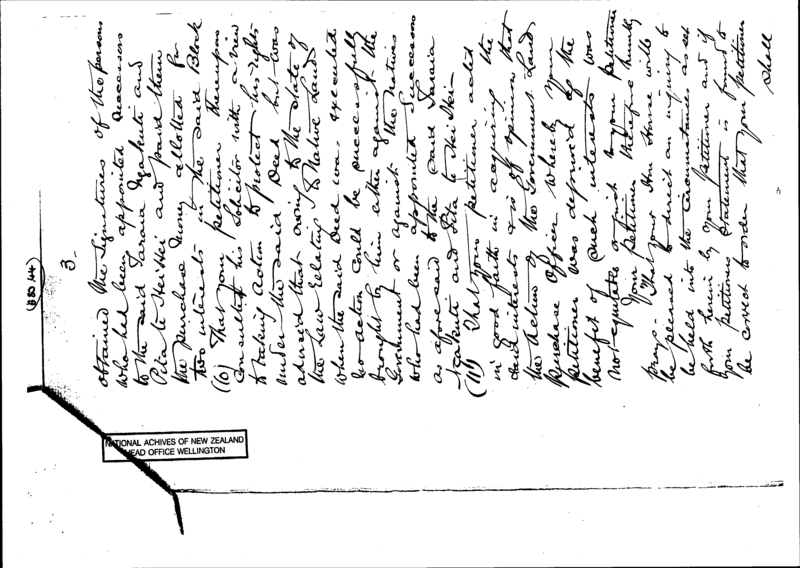 (B80 144)
3.
obtained the Signatures of the persons
who had been appointed Successors
to the said Taraia Ngakuti and
Pita te Hei Hei and paid them
the purchase money allotted for
two interests in the said Block
(10) That your petitioner thereupon
consulted his Solicitor with a view
to taking action to protect his rights
under the said Deed but was
advised that owing to the state of
the Law relating to Native Land
when the said Deed was executed
no action could be successfully
brought by him either against the
Government or against the natives
who had been appointed Successors
as aforesaid to the said Taraia
Ngakuti and Pita te Hei Hei -
(11) That your petitioner acted
in good faith in acquiring the
said interests & is of opinion that
the action of the Government Land
Purchase Officer whereby your
petitioner was deprived of the
benefit of such interests was
not equitable or just to your petitioner
Your petitioner therefore humbly
prays That your Hon House will
be pleased to direct an inquiry to
be held into the circumstances as set
forth herein by your petitioner and if
your petitioners statement is found to
be correct to order that your petitioner
shall
NATIONAL ACHIVES OF NEW ZEALAND
HEAD OFFICE WELLINGTON